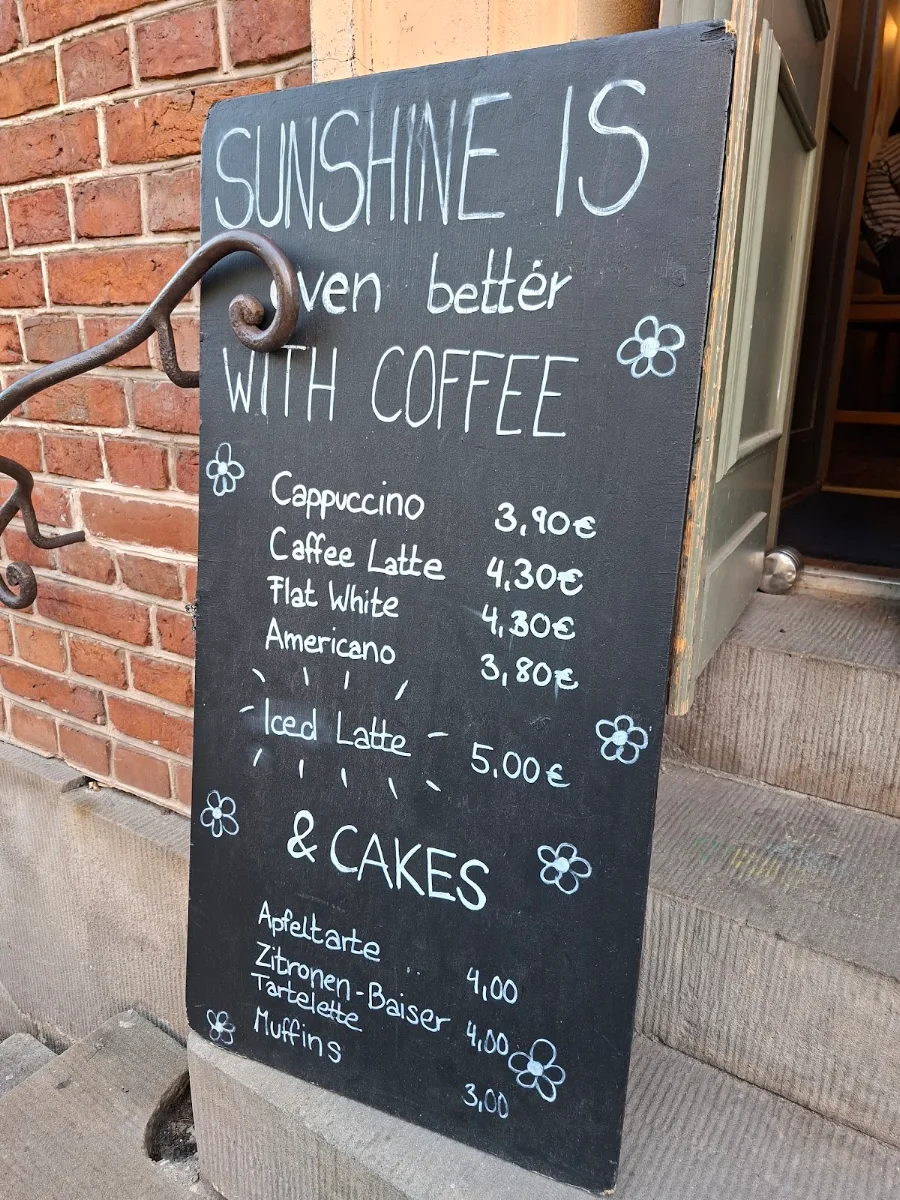 SUNSHINE IS
even better
WITH COFFEE
Cappuccino 3,90€
Caffee Latte 4,30€
Flat White 4,30€
Americano 3,80€
Iced Latte 5,00€
& CAKES
Apfeltarte 4,00
Zitronen-Baiser 4,00
Tartelette
Muffins 3,00